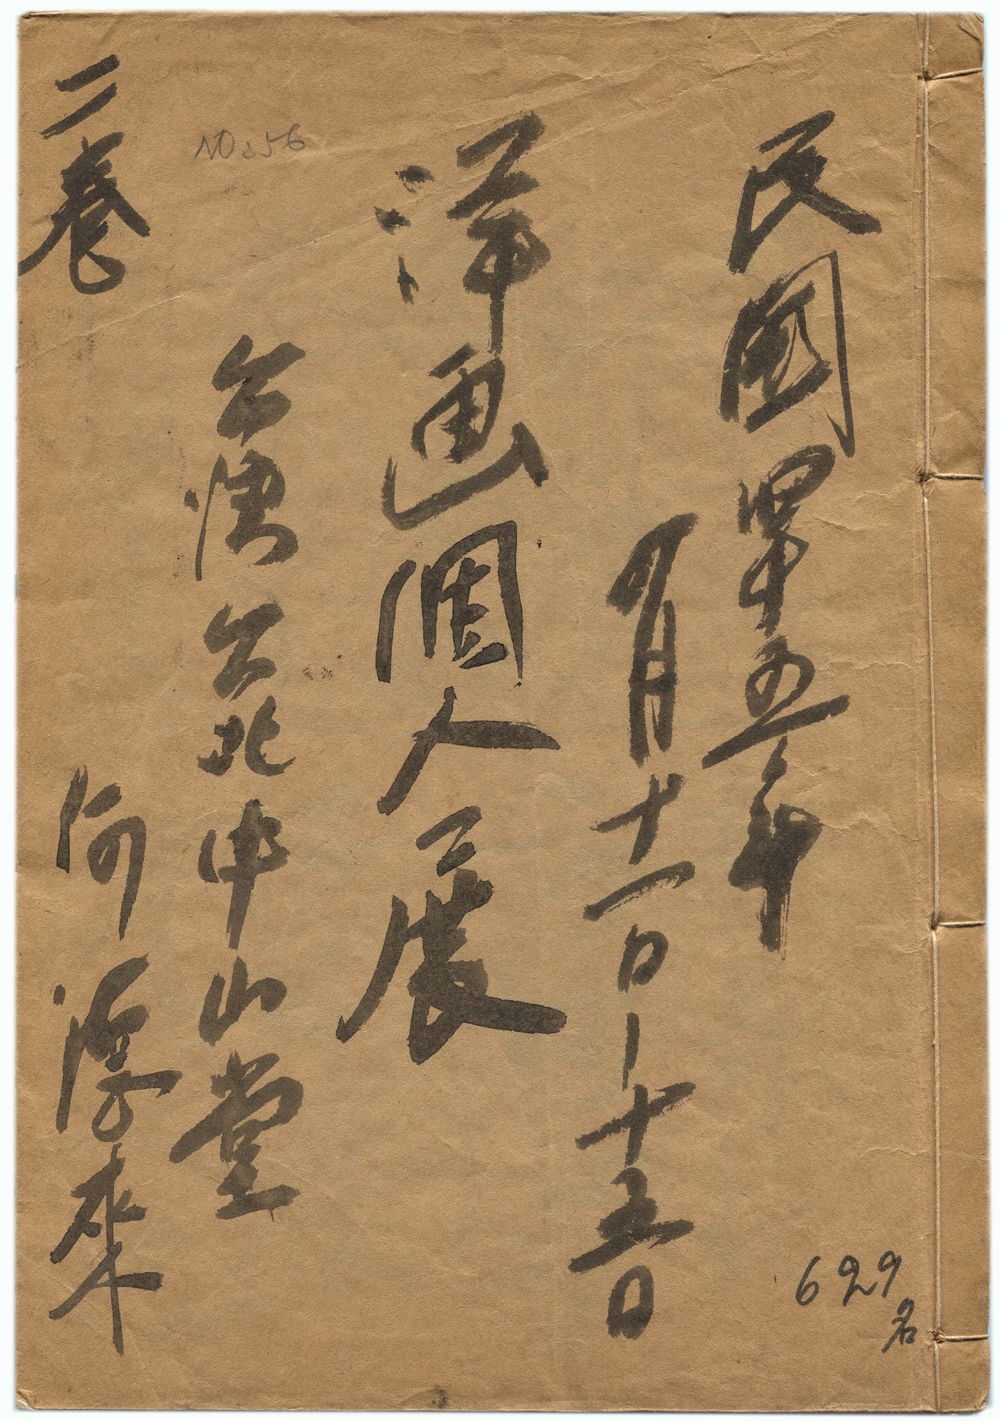 民國四十五年
四月十一日|十五日
洋画個人展
NO.56
台湾台北中山堂
二卷
何德來
629名